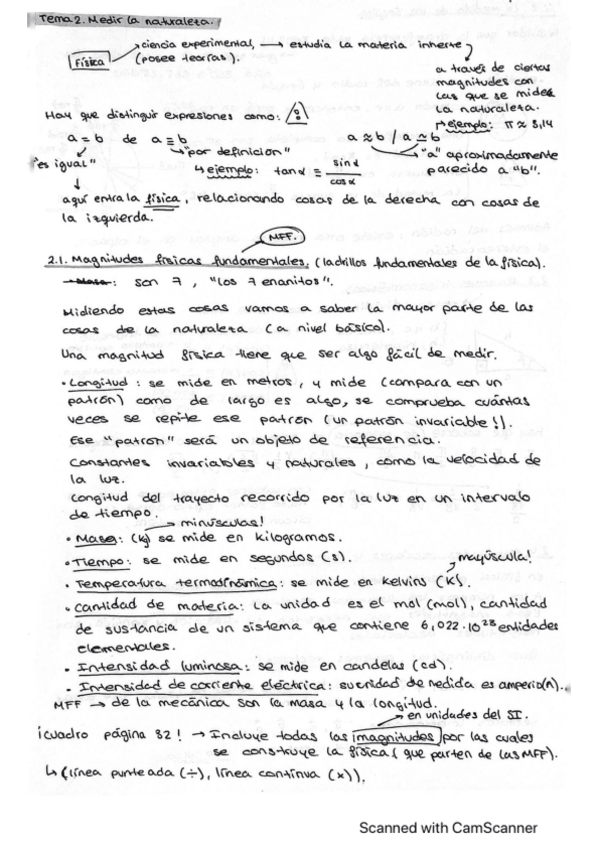 Tema 2. Medir la naturaleza.
Física → ciencia experimental, → estudia la materia inherte
(posee teorías).
a través de ciertas
magnitudes con
las que se mide
la naturaleza.
Hay que distinguir expresiones como:
ejemplo: π ≈ 3,14
a = b de a ≡ b a ≈ b / a ≃ b
"es igual" "por definición" "a" aproximadamente
parecido a "b".
↳ ejemplo: tan α ≡ sin α / cos α
aquí entra la física, relacionando cosas de la derecha con cosas de
la izquierda.
MFF.
2.1. Magnitudes físicas fundamentales. (ladrillos fundamentales de la física).
: son 7, "los 7 enanitos".
Midiendo estas cosas vamos a saber la mayor parte de las
cosas de la naturaleza (a nivel básico).
Una magnitud física tiene que ser algo fácil de medir.
· Longitud: se mide en metros, y mide (compara con un
patrón) como de largo es algo, se comprueba cuántas
veces se repite ese patrón (un patrón invariable!).
Ese "patrón" será un objeto de referencia.
Constantes invariables y naturales, como la velocidad de
la luz.
Longitud del trayecto recorrido por la luz en un intervalo
de tiempo.
→ minúsculas!
· Masa: (kg) se mide en kilogramos.
· Tiempo: se mide en segundos (s). mayúscula!
· Temperatura termodinámica: se mide en kelvins (K).
· Cantidad de materia: La unidad es el mol (mol), cantidad
de sustancia de un sistema que contiene 6,022·10²³ entidades
elementales.
· Intensidad luminosa: se mide en candelas (cd).
· Intensidad de corriente eléctrica: su unidad de medida es amperio (A).
MFF → de la mecánica son la masa y la longitud.
→ en unidades del SI.
¡cuadro página 32! → Incluye todas las magnitudes por las cuales
se construye la física (que parten de las MFF).
↳ (línea punteada (÷), línea continua (x)).
Scanned with CamScanner